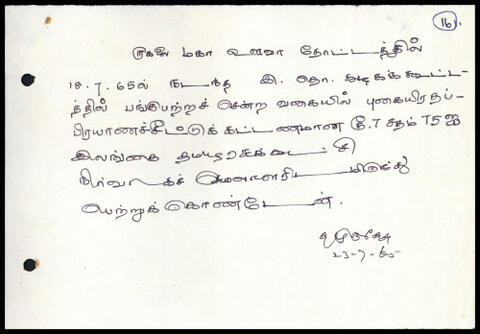 16).
நுகலை மகா ஊவா தோட்டத்தில்
18.7.65ல் நடந்த இ. தொ. கழகக் கூட்ட-
த்தில் பங்குபற்றச் சென்ற வகையில் புகையிரதப்-
பிரயாணச்சீட்டுக் கட்டணமான ரூ.7 சதம் 75ஐ
இலங்கை தமிழரசுக்கட்சி
நிர்வாகச் செயலாளரிடமிருந்து
பெற்றுக் கொண்டேன்.
23-7-65